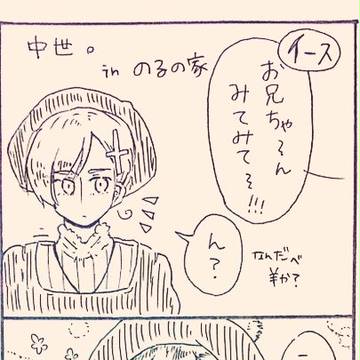 中世。
in のるの家
イース
お兄ちゃーん
みてみてミ!!!
ん?
なんだべ
羊か?